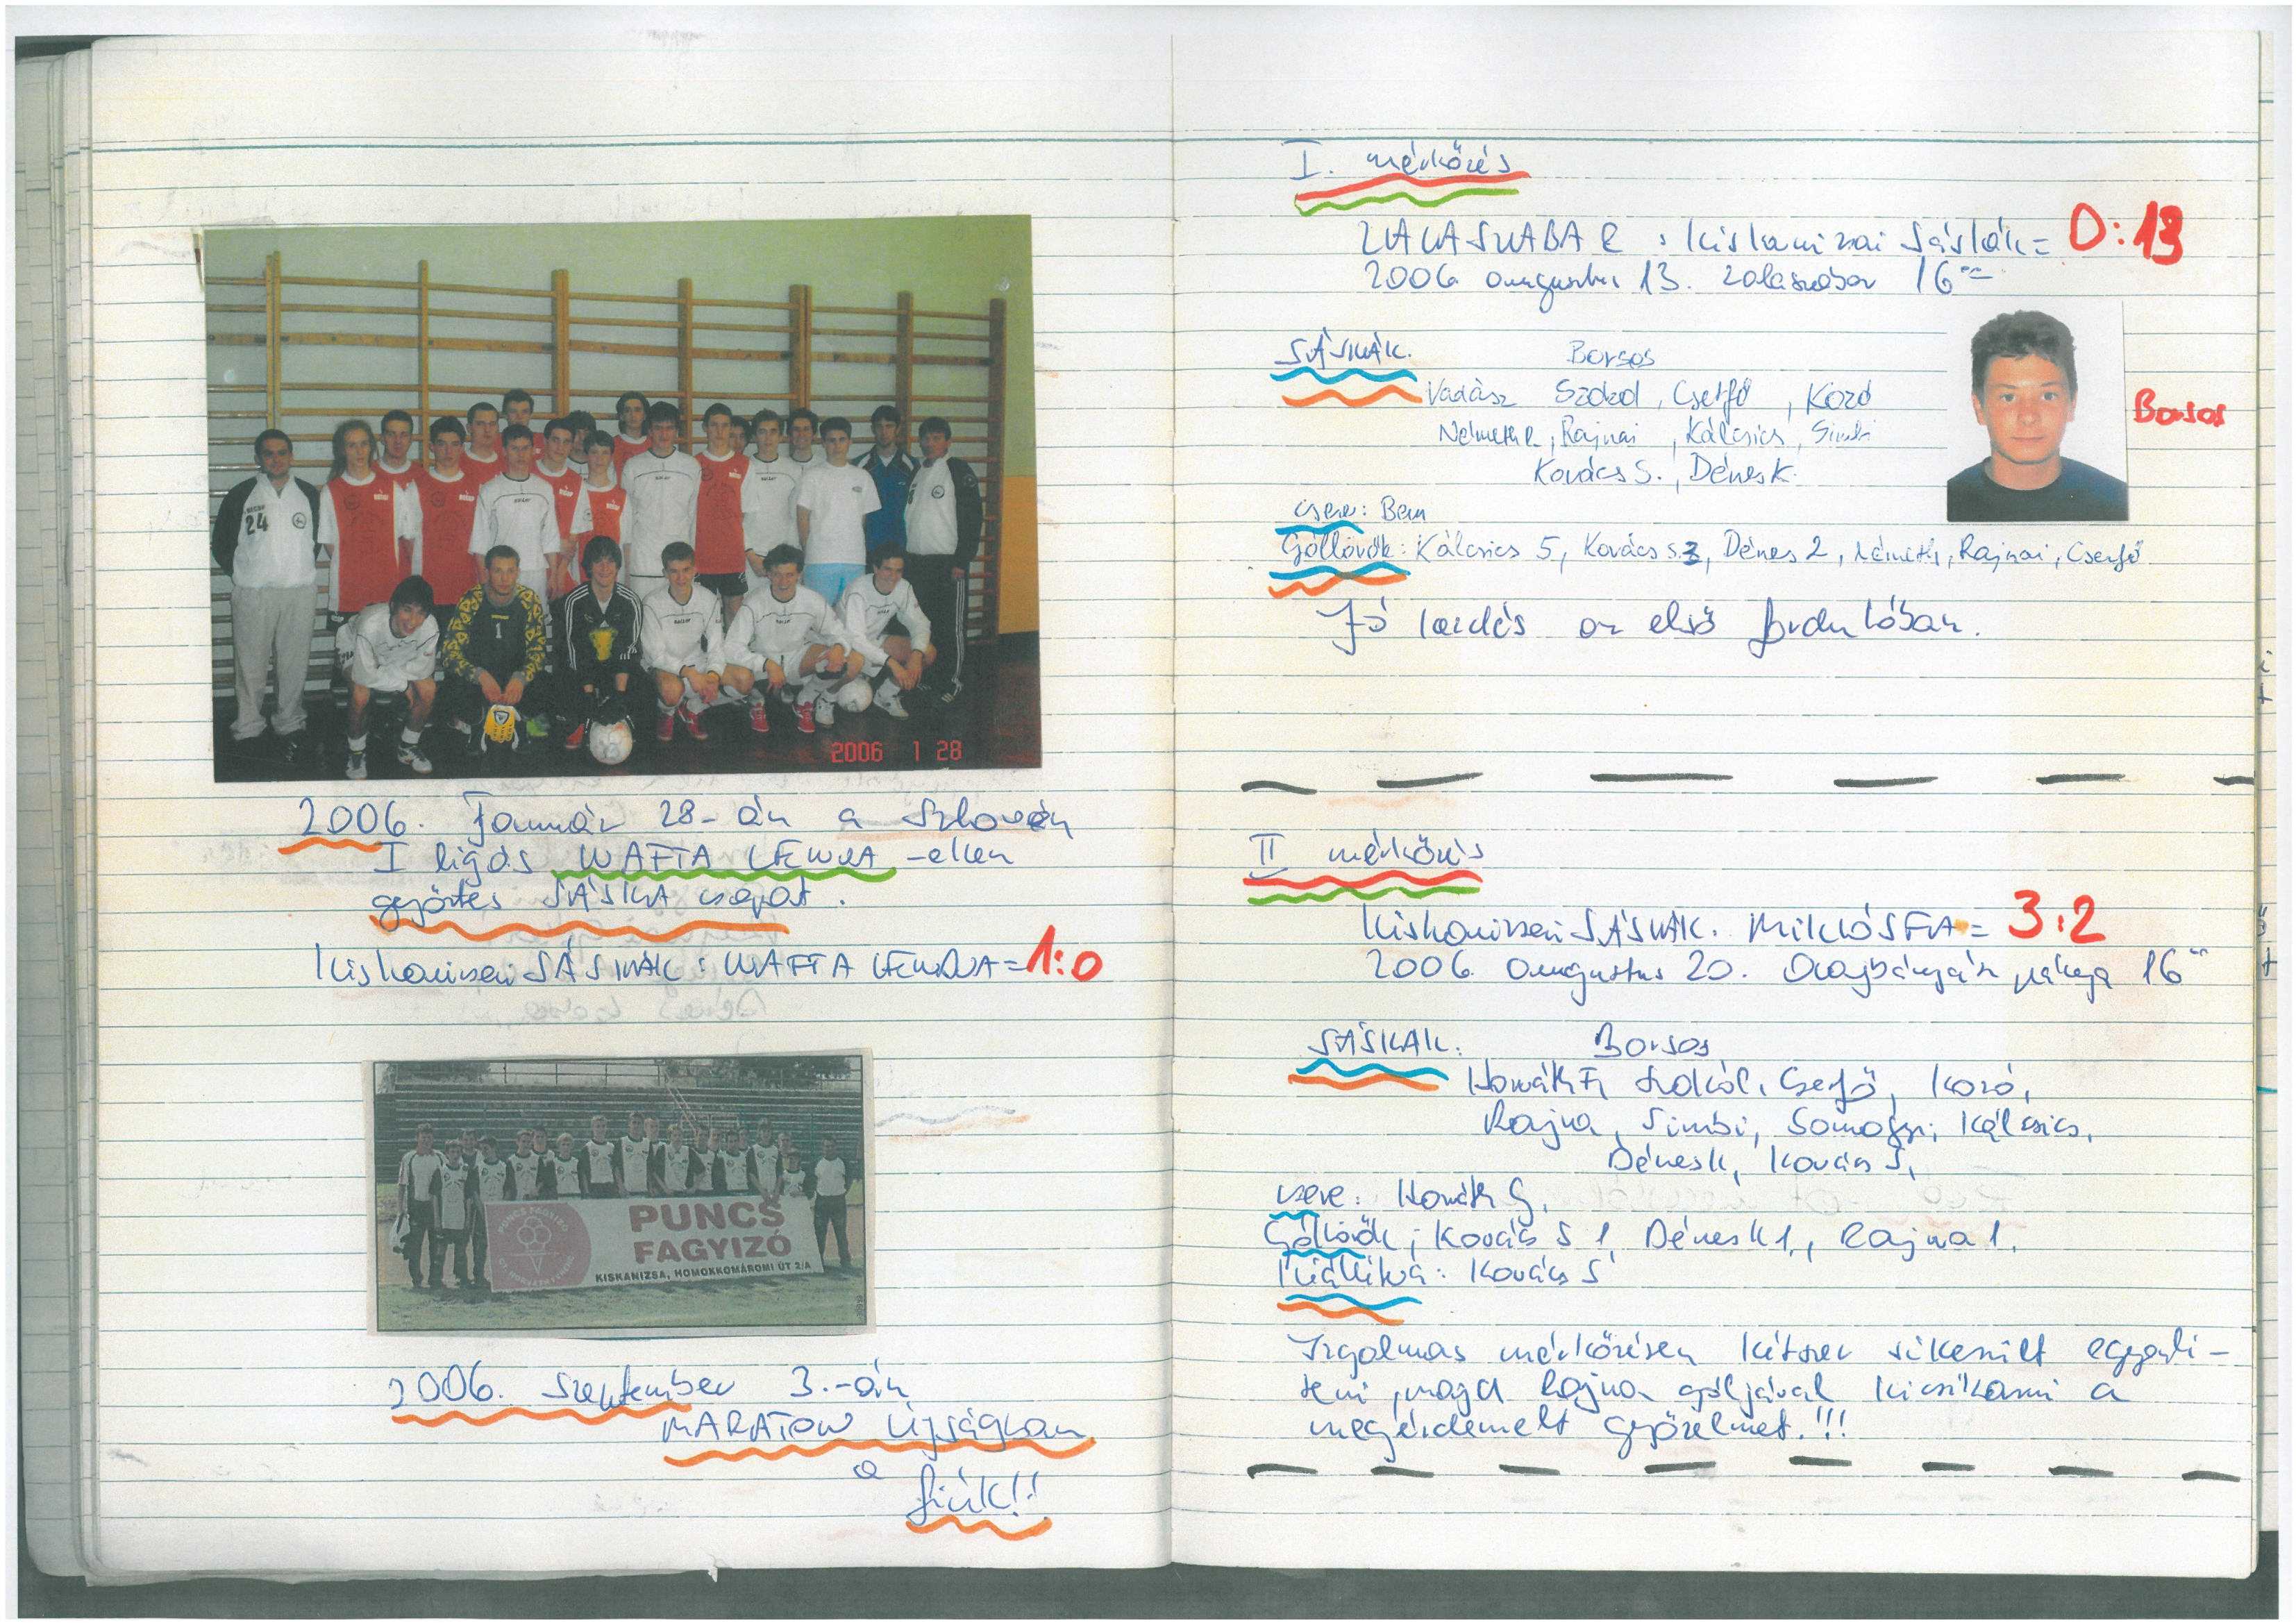 24
1
2006 1 28
2006. Január 28-án a Szlovén
I ligás NAFTA LENDVA -ellen
győztes SÁSKA csapat.
Kiskanizsai SÁSKÁK : NAFTA LENDVA = 1:0
PUNCS FAGYIZÓ
PUNCS
FAGYIZÓ
KISKANIZSA, HOMOKKOMÁROMI ÚT 2/A
2006. Szeptember 3.-án
MARATON Újságban
a
fiúk!!
I. mérkőzés
ZALASZABAR : Kiskanizsai Sáskák = 0:13
2006 augusztus 13. Zalaszabar 16
SÁSKÁK. Borsos
Vadász Szokol, Cserfő, Kozó
Németh R, Rajnai, Kálcsics, Simbi
Kovács S., Dénes K.
Borsos
csere: Bem
Góllövők: Kálcsics 5, Kovács S. 3, Dénes 2, Németh, Rajnai, Cserfő
Jó kezdés az első fordulóban.
II mérkőzés
Kiskanizsai SÁSKÁK. MIKLÓSFA = 3:2
2006 augusztus 20. Olajbányász pálya 16
SÁSKÁK: Borsos
Horváth F, Szokol, Cserfő, Kozó,
Rajna, Simbi, Somogyi, Kálcsics,
Dénes K, Kovács S,
csere: Horváth G,
Góllövők; Kovács S 1, Dénes K 1., Rajna 1.
Kiállítva: Kovács S
Izgalmas mérkőzésen kétszer sikerült egyenlí-
teni, majd Rajna góljával kicsikarni a
megérdemelt győzelmet.!!!